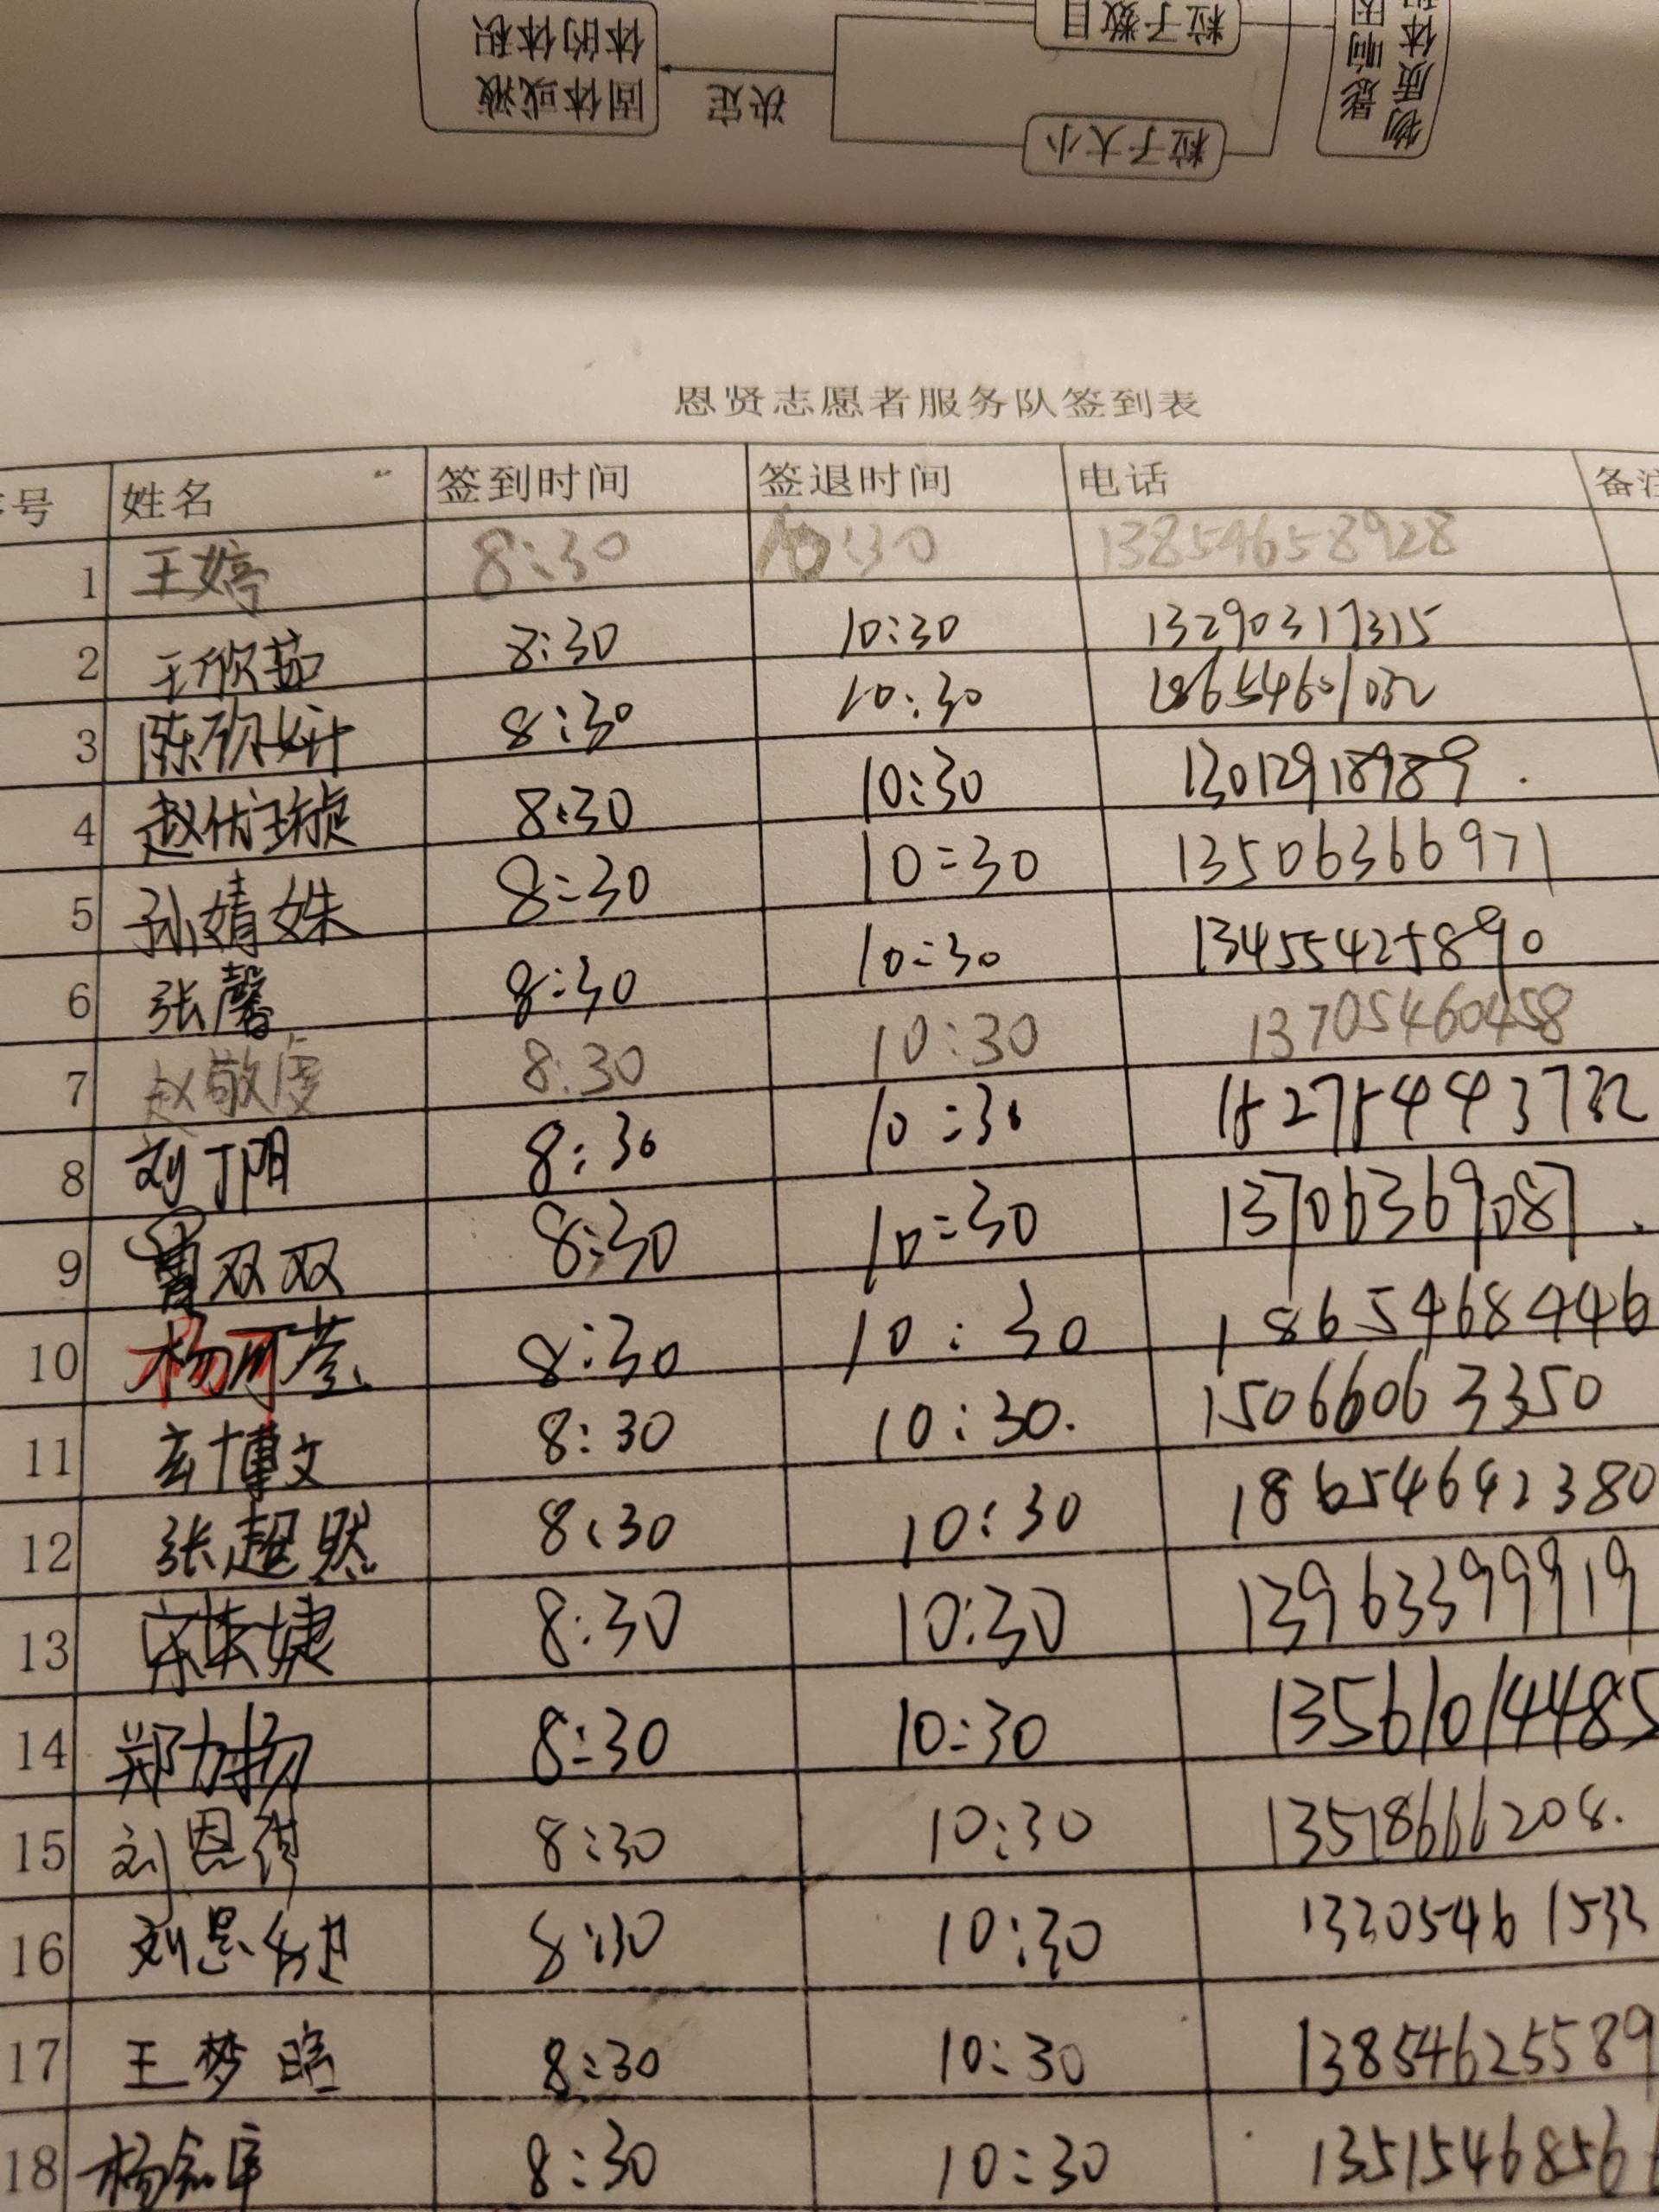 物质体积的影响因
粒子数目
粒子大小
决定
固体或液
体的体积
恩贤志愿者服务队签到表
号 姓名 签到时间 签退时间 电话 备注
1 王婷 8:30 10:30 13854658928
2 王欣茹 8:30 10:30 13290317315
3 陈砚妍 8:30 10:30 18654601032
4 赵优璇 8:30 10:30 13012918989
5 孙婧姝 8:30 10:30 13506366971
6 张馨 8:30 10:30 13455425890
7 赵敬虔 8:30 10:30 13705460458
8 刘丁阳 8:30 10:30
9 曹双双 8:30 10:30 13706369087
10 杨可莹 8:30 10:30 18654684446
11 玄博文 8:30 10:30 15066063350
12 张超然 8:30 10:30 18654642380
13 8:30 10:30 13963399919
14 郑力扬 8:30 10:30 13561014485
15 刘恩 8:30 10:30 13518666208
16 刘恩 8:30 10:30 13205461533
17 王梦晗 8:30 10:30 13854625589
18 杨 8:30 10:30 1351546856